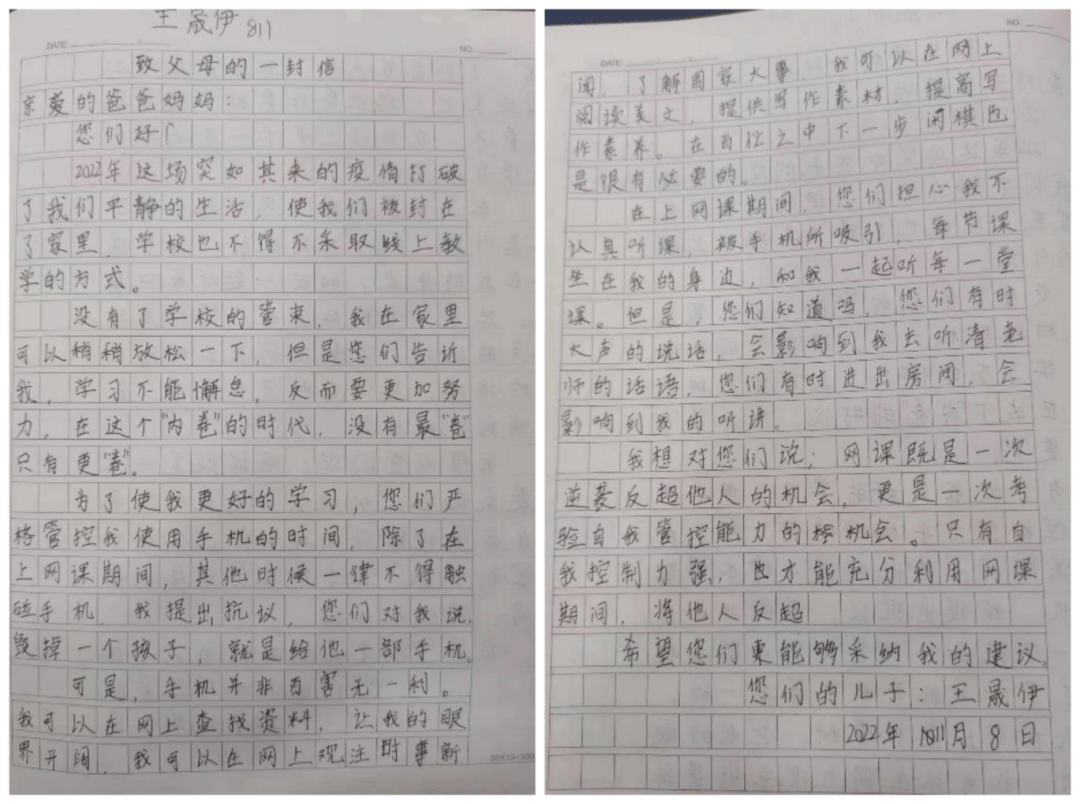 王晟伊 811
DATE
NO.
致父母的一封信
亲爱的爸爸妈妈：
您们好！
2022年这场突如其来的疫情打破
了我们平静的生活，使我们被封在
了家里，学校也不得不采取线上教
学的方式。
没有了学校的管束，我在家里
可以稍稍放松一下，但是您们告诉
我，学习不能懈怠，反而要更加努
力，在这个"内卷"的时代，没有最"卷"
只有更"卷"。
为了使我更好的学习，您们严
格管控我使用手机的时间，除了在
上网课期间，其他时候一律不得触
碰手机，我提出抗议，您们对我说，
毁掉一个孩子，就是给他一部手机。
可是，手机并非百害无一利。
我可以在网上查找资料，让我的眼
界开阔，我可以在网上观注时事新
20X15=300
DATE
NO.
闻，了解国家大事，我可以在网上
阅读美文，提供写作素材，提高写
作素养。在百忙之中下一步闲棋也
是很有必要的。
在上网课期间，您们担心我不
认真听课，被手机所吸引，每节课
坐在我的身边，和我一起听每一堂
课。但是，您们知道吗，您们有时
大声的说话，会影响到我去听清老
师的话语，您们有时进出房间，会
影响到我的听讲。
我想对您们说：网课既是一次
逆袭反超他人的机会，更是一次考
验自我管控能力的机会。只有自
我控制力强，也才能充分利用网课
期间，将他人反超
希望您们能够采纳我的建议。
您们的儿子：王晟伊
2022年11月8日